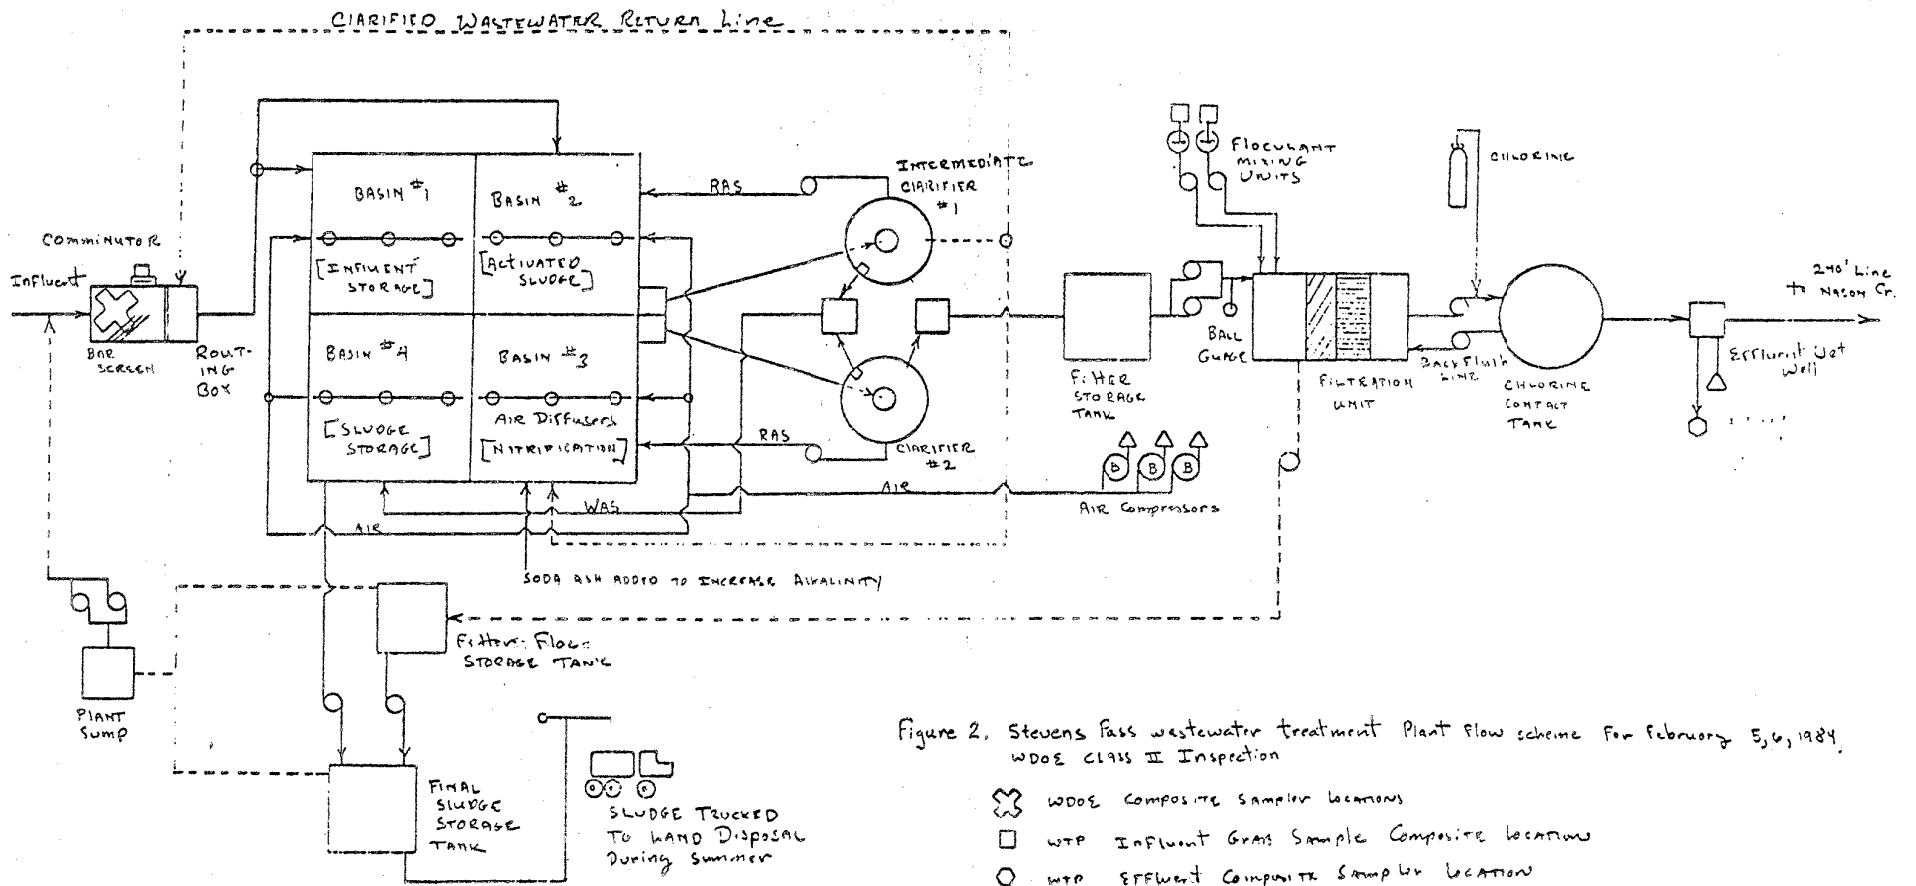 CLARIFIED WASTEWATER RETURN Line
COMMINUTOR
Influent
BAR
SCREEN
ROUT-
ING
BOX
BASIN #1
[INFLUENT
STORAGE]
BASIN #2
[ACTIVATED
SLUDGE]
BASIN #4
[SLUDGE
STORAGE]
BASIN #3
AIR Diffusers
[NITRIFICATION]
RAS
INTERMEDIATE
CLARIFIER
#1
RAS
CLARIFIER
#2
AIR
WAS
AIR
SODA ASH ADDED TO INCREASE ALKALINITY
FLOCULANT
MIXING
UNITS
CHLORINE
BALL
GUAGE
FILTER
STORAGE
TANK
FILTRATION
UNIT
BACKFLUSH
LINE
CHLORINE
CONTACT
TANK
240' Line
to NASON Cr.
Effluent Wet
Well
B
B
B
AIR Compressors
STORAGE TANK
PLANT
Sump
FINAL
SLUDGE
STORAGE
TANK
SLUDGE TRUCKED
TO LAND Disposal
During Summer
Figure 2. Stevens Pass wastewater treatment Plant Flow scheme For February 5,6, 1984.
WDOE CLASS II Inspection
WDOE COMPOSITE SAMPLER LOCATIONS
WTP INFLUENT GRAB SAMPLE COMPOSITE LOCATION
WTP EFFLUENT COMPOSITE SAMPLER LOCATION